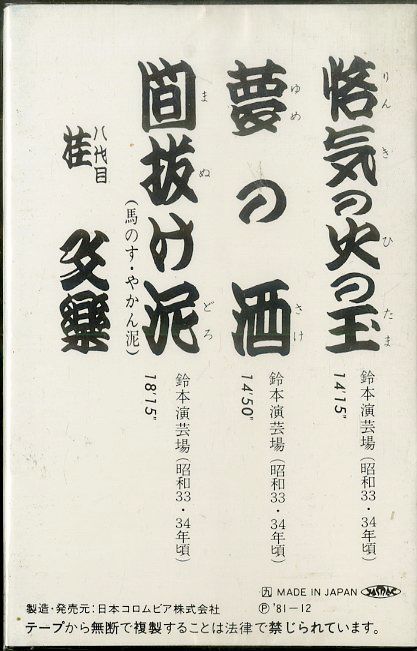 悋気の火の玉
りんきひたま
鈴本演芸場(昭和33・34年頃)
14'15"
夢の酒
ゆめさけ
鈴本演芸場(昭和33・34年頃)
14'50"
間抜け泥
まぬどろ
(馬のす・やかん泥)
鈴本演芸場(昭和33・34年頃)
18'15"
八代目
桂 文樂
囚 MADE IN JAPAN
製造・発売元:日本コロムビア株式会社 Ⓟ '81-12
テープから無断で複製することは法律で禁じられています。